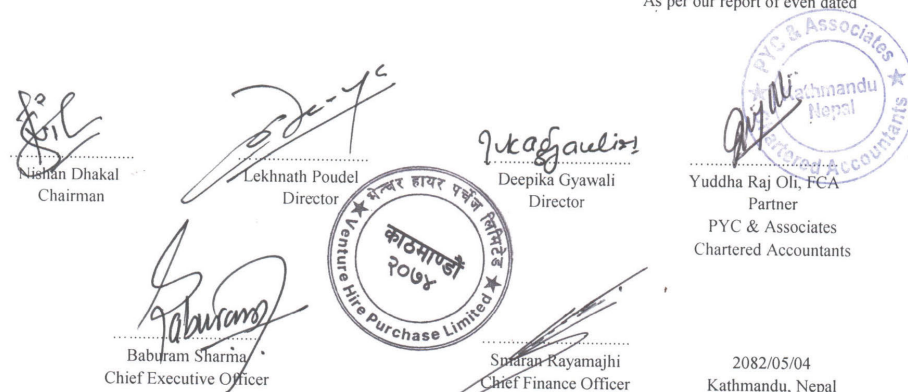 As per our report of even dated
PYC & Associates
Kathmandu
Nepal
Chartered Accountants
Nishan Dhakal
Chairman
Lekhnath Poudel
Director
Deepika Gyawali
Director
Yuddha Raj Oli, FCA
Partner
PYC & Associates
Chartered Accountants
भेन्चर हायर पर्चेज लिमिटेड
काठमाण्डौं
२०७४
Venture Hire Purchase Limited
Baburam
Baburam Sharma
Chief Executive Officer
Smaran Rayamajhi
Chief Finance Officer
2082/05/04
Kathmandu, Nepal